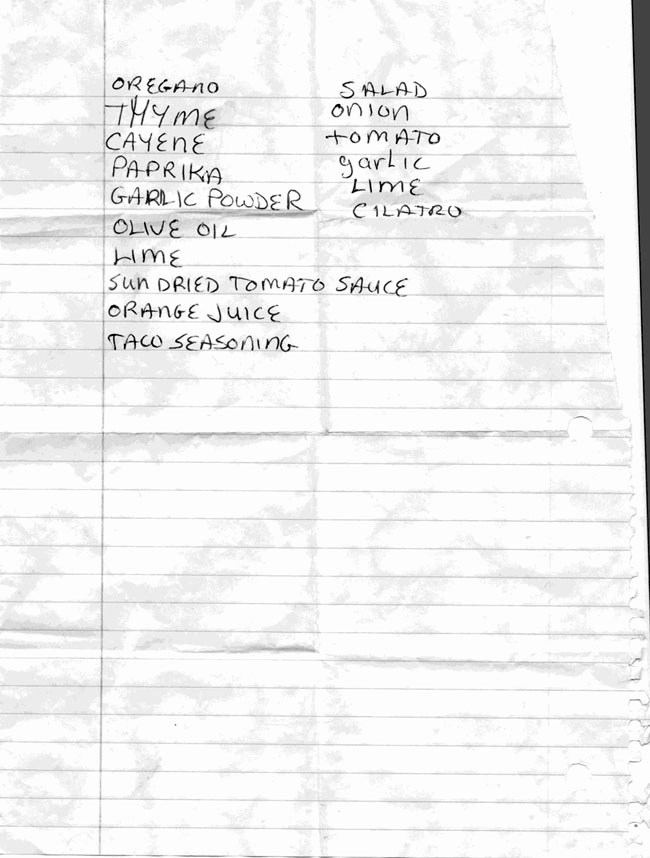 OREGANO
THYME
CAYENE
PAPRIKA
GARLIC POWDER
OLIVE OIL
LIME
SUN DRIED TOMATO SAUCE
ORANGE JUICE
TACO SEASONING
SALAD
ONION
TOMATO
garlic
LIME
CILATRO